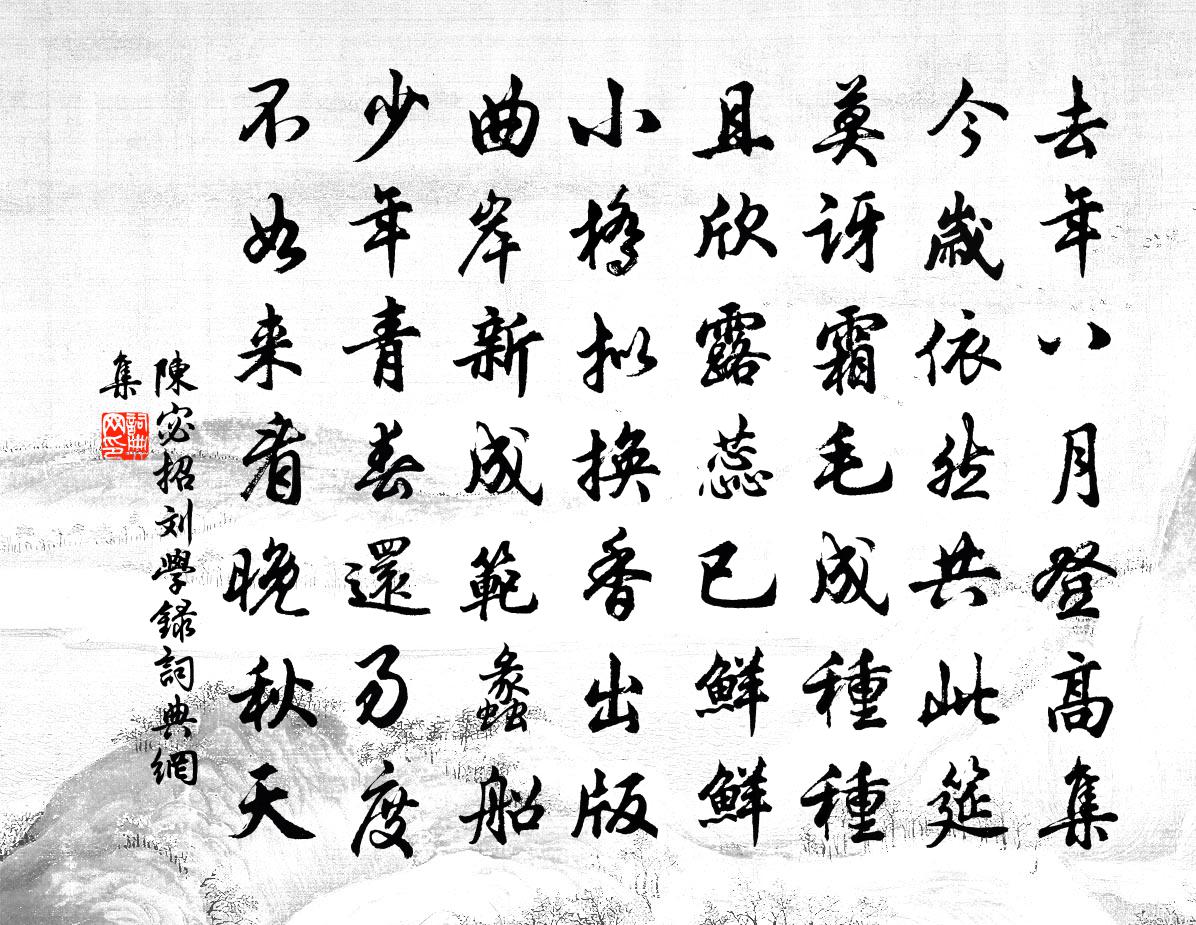 去年八月登高集
今歲依然共此筵
莫訝霜毛成種種
且欣露蕊已鮮鮮
小橋拟換香出版
曲岸新成範蠡船
少年青春還易度
不如来看晚秋天
陳宓招刘學録詞典網
集
詞典網印